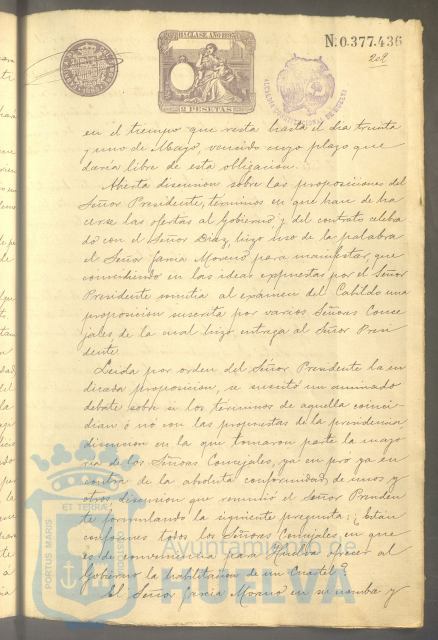 11ª CLASE AÑO 1895
2 PESETAS
N. 0.377.436
202
ALCALDIA CONSTITUCIONAL DE HUELVA
en el tiempo que resta hasta el dia treinta
y uno de Mayo, vencido cuyo plazo que
daria libre de esta obligacion.
Abierta discusion sobre las proposiciones del
Señor Presidente, términos en que han de ha
cerse las ofertas al Gobierno y del contrato celebra
do con el Señor Diaz, hizo uso de la palabra
el Señor Garcia Moreno para manifestar, que
coincidiendo en las ideas expuestas por el Señor
Presidente sometia al exámen del Cabildo una
proposicion suscrita por varios Señores Conce
jales de la cual hizo entrega al Señor Presi
dente.
Leida por orden del Señor Presidente la in
dicada proposicion, se suscitó un animado
debate sobre si los términos de aquella coinci-
dian ó no con las propuestas de la presidencia
discusion en la que tomaron parte la mayo
ria de los Señores Concejales, ya en pró ya en
contra de la absoluta conformidad de unos y
otros discusion que resumió el Señor Presiden
te formulando la siguiente pregunta: ¿Están
conformes todos los Señores Concejales en que
es de conveniencia para Huelva ofrecer al
Gobierno la habilitacion de un Cuartel?
El Señor Garcia Moreno en su nombre y
PORTUS MARIS
ET TERRAE
CUSTODIA
Ayuntamiento de
HUELVA